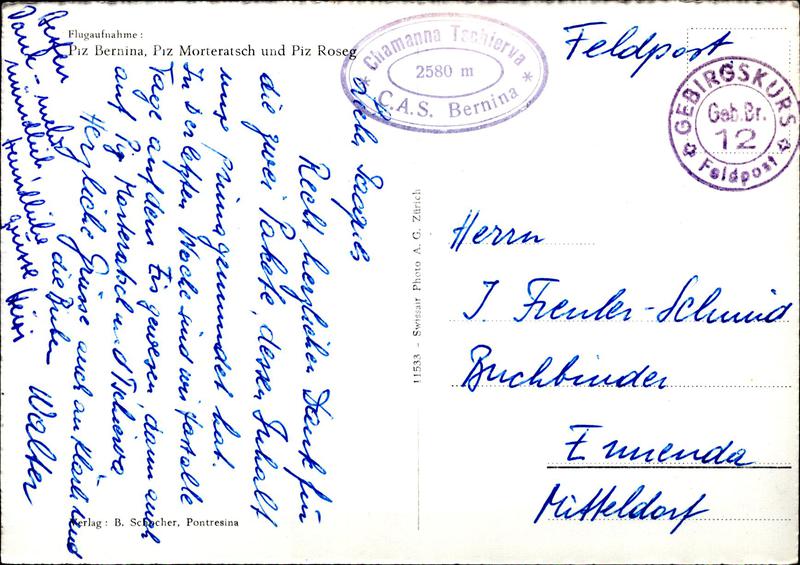 Flugaufnahme:
Piz Bernina, Piz Morteratsch und Piz Roseg
Chamanna Tschierva
2580 m
C.A.S. Bernina
Feldpost
GEBIRGSKURS
Geb. Br.
12
Feldpost
Recht herzlichen Dank für
die zwei Pakete, dessen Inhalt
uns prima gemundet hat.
In der letzten Woche sind wir fast alle
Tage auf dem Eis gewesen dann auch
auf Piz Morteratsch und Tschierva
Herzliche Grüsse auch an Klärli und
die Buben Walter
Besten
Dank - mehr
mündlich
freundliche
Grüsse Heiri
11533 - Swissair Photo A. G. Zürich
Herrn
J. Freuler-Schmid
Buchbinder
Ennenda
Mitteldorf
Verlag: B. Schocher, Pontresina